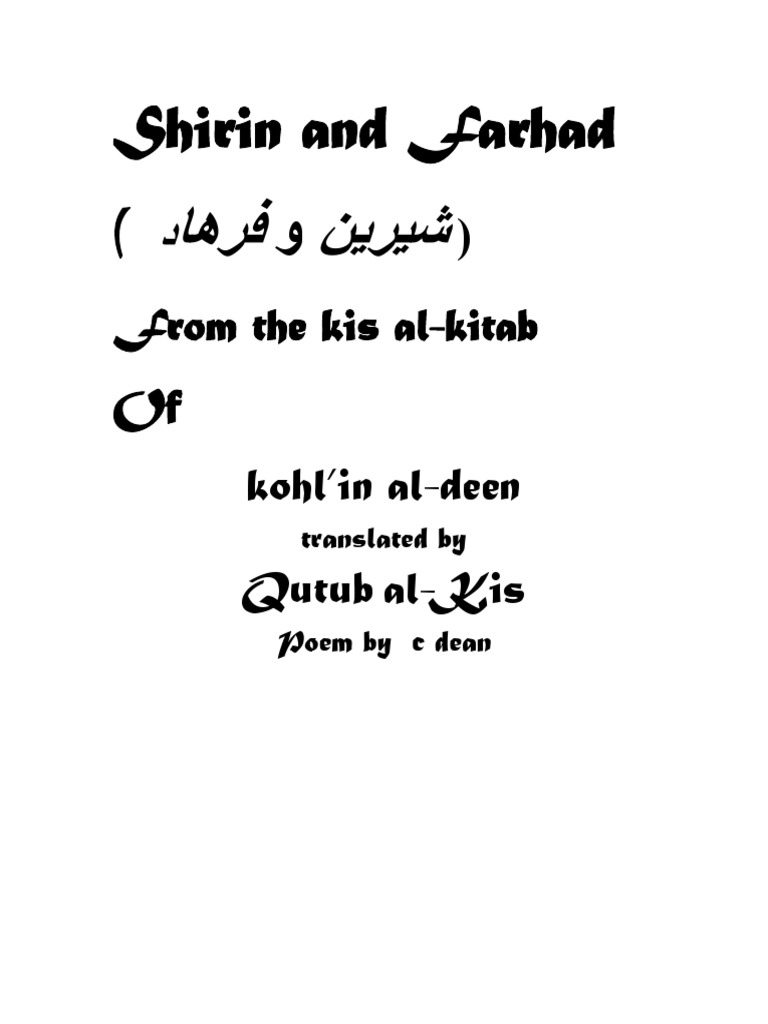 Shirin and Farhad
( شیرین و فرهاد)
From the kis al-kitab
Of
kohl'in al-deen
translated by
Qutub al-Kis
Poem by c dean